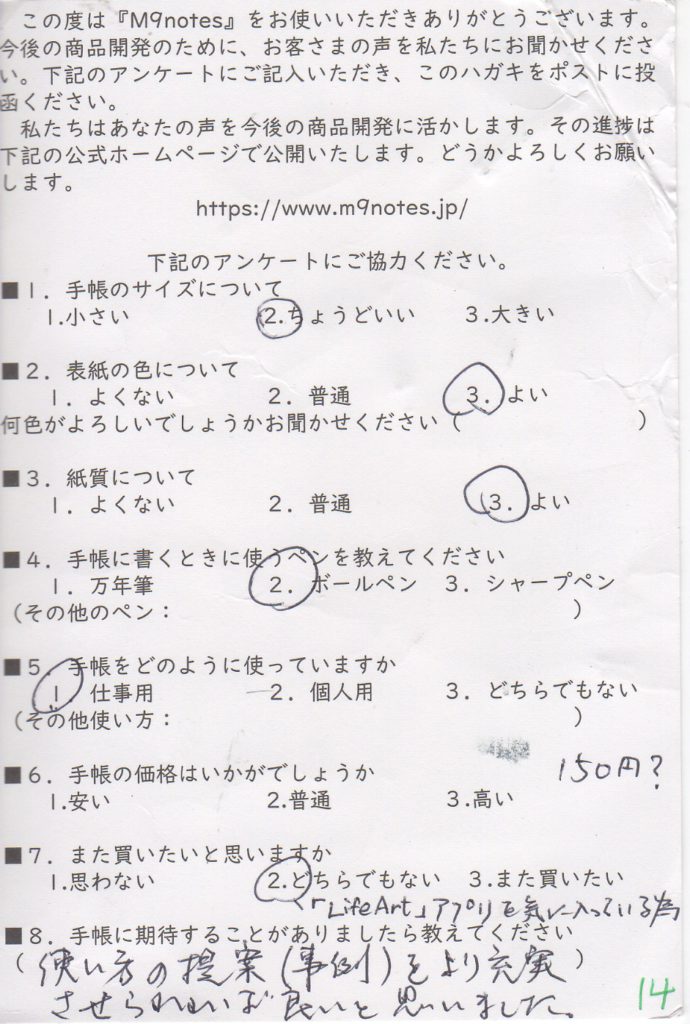 この度は『M9notes』をお使いいただきありがとうございます。
今後の商品開発のために、お客さまの声を私たちにお聞かせくださ
い。下記のアンケートにご記入いただき、このハガキをポストに投
函ください。
私たちはあなたの声を今後の商品開発に活かします。その進捗は
下記の公式ホームページで公開いたします。どうかよろしくお願い
します。
https://www.m9notes.jp/
下記のアンケートにご協力ください。
■1．手帳のサイズについて
1.小さい 2.ちょうどいい 3.大きい
■2．表紙の色について
1．よくない 2．普通 3．よい
何色がよろしいでしょうかお聞かせください（ ）
■3．紙質について
1．よくない 2．普通 3．よい
■4．手帳に書くときに使うペンを教えてください
1．万年筆 2．ボールペン 3．シャープペン
（その他のペン： ）
■5．手帳をどのように使っていますか
1．仕事用 2．個人用 3．どちらでもない
（その他使い方： ）
■6．手帳の価格はいかがでしょうか 150円？
1.安い 2.普通 3.高い
■7．また買いたいと思いますか
1.思わない 2.どちらでもない 3.また買いたい
「LifeArt」アプリを気に入っている為
■8．手帳に期待することがありましたら教えてください
（使い方の提案（事例）をより充実）
させられれば良いと思いました。
14